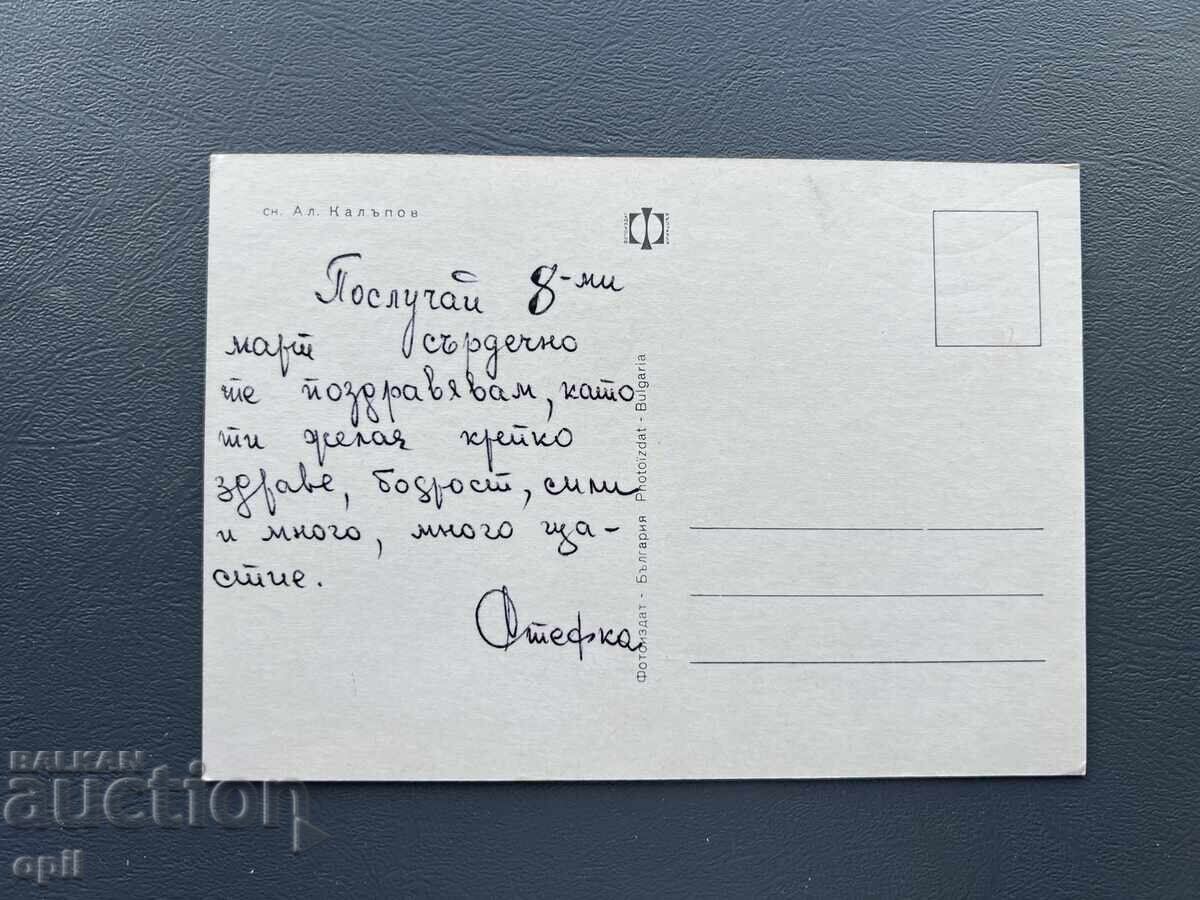 сн. Ал. Калъпов
Послучай 8-ми
март сърдечно
те поздравявам, като
ти желая крепко
здраве, бодрост, сили
и много, много ща-
стие.
Стефка
Фотоиздат - България Photoizdat - Bulgaria
BALKAN
auction
opil